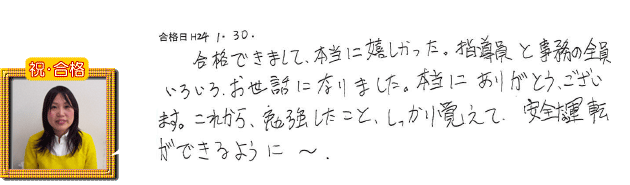 合格日 H24 1.30.
祝・合格
合格できまして、本当に嬉しかった。指導員と事務の全員
いろいろ、お世話になりました。本当にありがとう、ござい
ます。これから、勉強したこと、しっかり覚えて、安全な運転
ができるように〜.